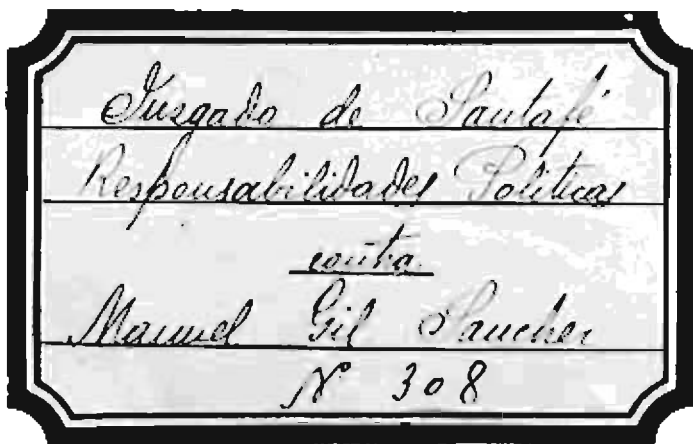 Juzgado de Santafé
Responsabilidades Politicas
contra
Manuel Gil Sanchez
Nº 308